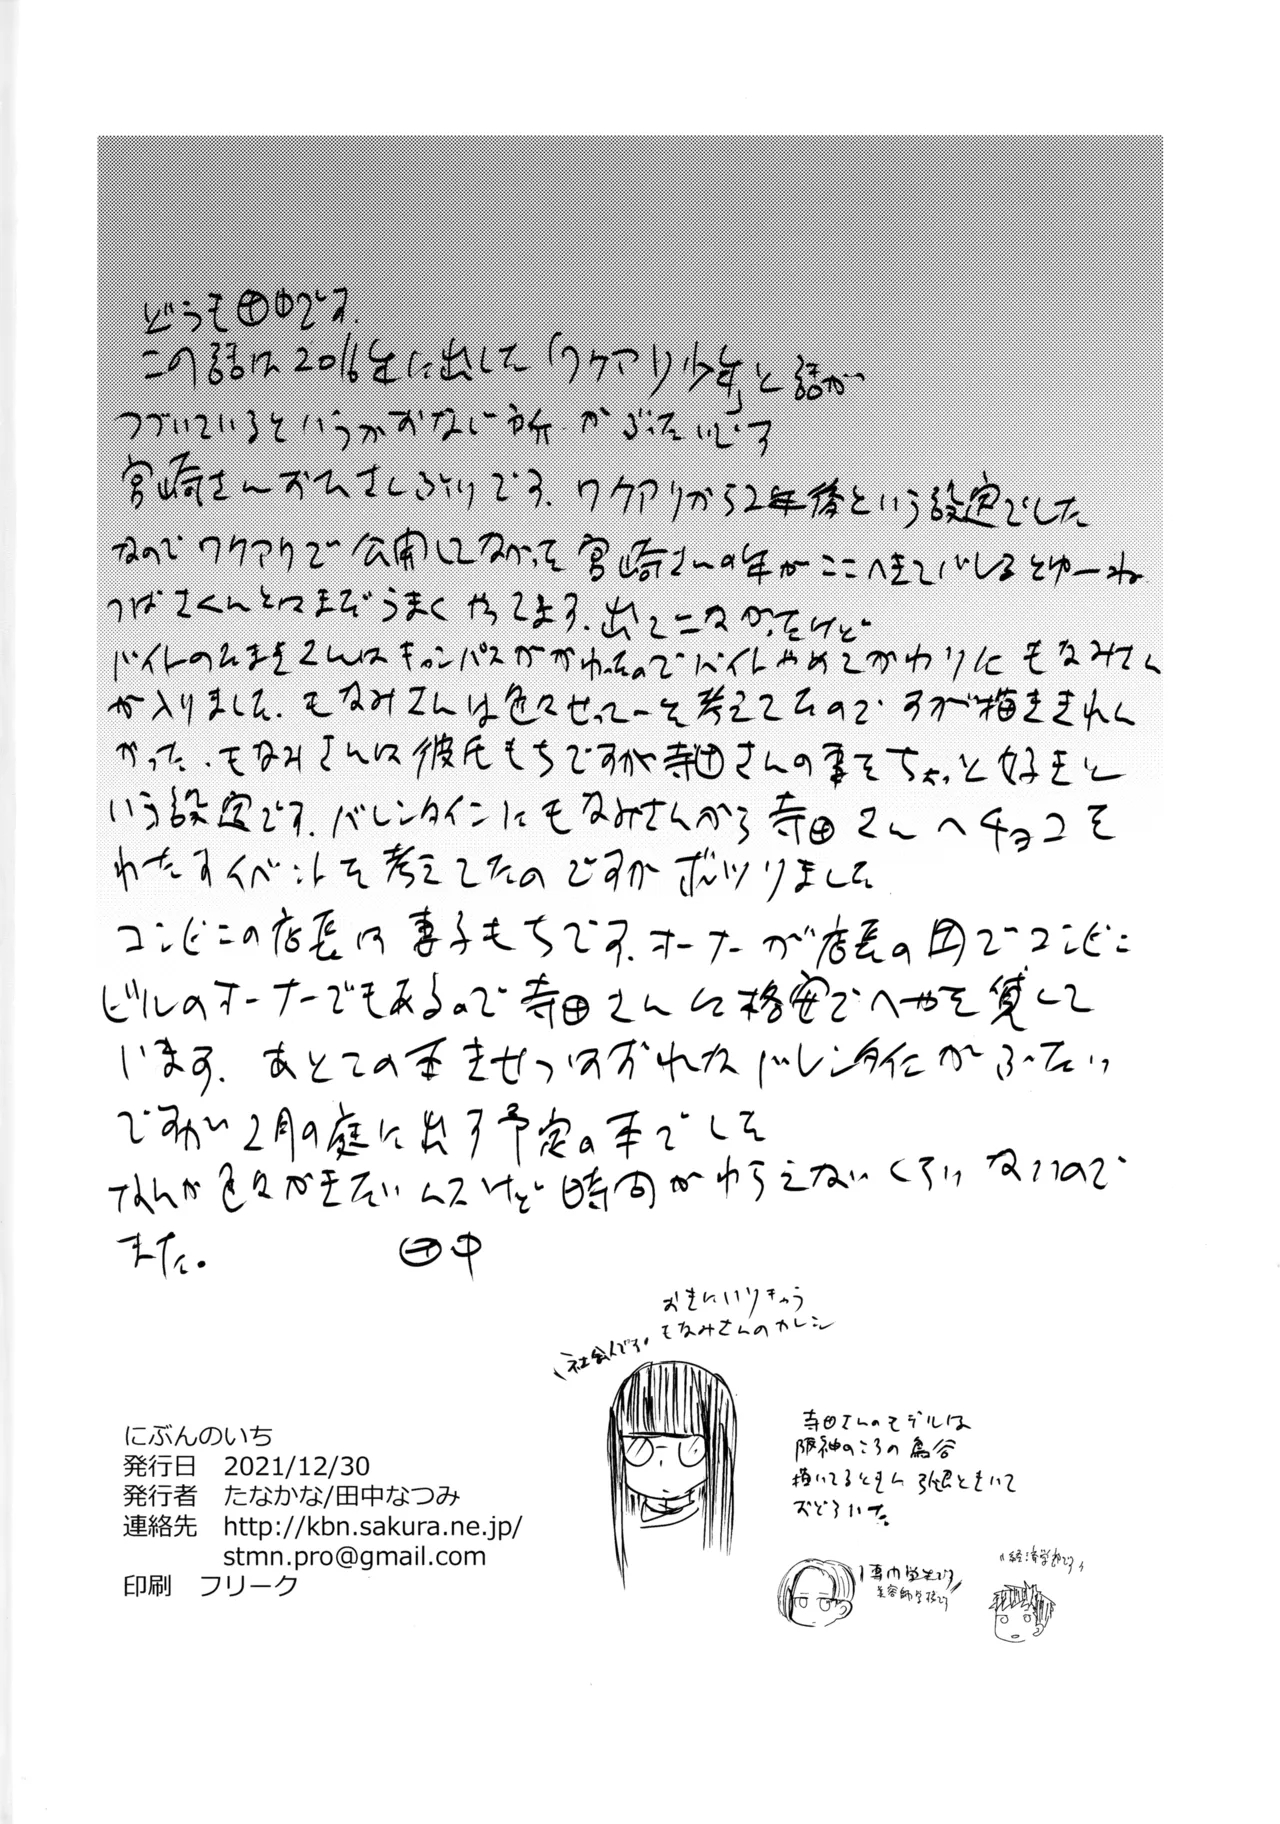 どうも田中です。
この話は2016年に出した「ワケアリ少年」と話が
つづいているというかおなじ所がぶたいです
宮崎さんおひさしぶりです。ワケアリから2年後という設定でした
なのでワケアリで公開してなかった宮崎さんの年がここへきてバレるとゆーね
つばさくんとはまだうまくやってます。出てこなかったけど
バイトのたまきさんはキャンパスがかわったのでバイトやめてかわりにもなみさん
が入りました。もなみさんは色々せってーを考えてたのですが描ききれん
かった。もなみさんは彼氏もちですが寺田さんの事をちょっと好きと
いう設定です。バレンタインにもなみさんから寺田さんへチョコを
わたすイベントを考えてたのですがボツりました
コンビニの店長は妻子もちです。オーナーが店長の
ビルのオーナーでもあるので寺田さんに格安でへやを貸して
います。あとこの本きせつはずれたバレンタインがぶたい
ですが2月の庭に出す予定の本でした
なんか色々かきたいんスけど時間がわらえないくらいないので
また。 田中
おきにいりきゃら
もなみさんのカレシ
社会人です
寺田さんのモデルは
阪神のころの鳥谷
描いてるときに引退ときいて
おどろいた。
専門学生です
美容師学校です
経済学部です
にぶんのいち
発行日 2021/12/30
発行者 たなかな/田中なつみ
連絡先 http://kbn.sakura.ne.jp/
stmn.pro@gmail.com
印刷 フリーク